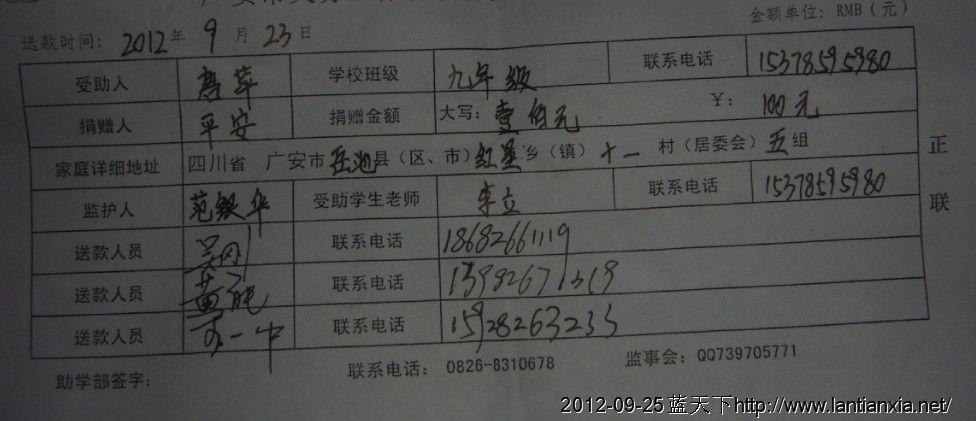 金额单位：RMB（元）
送款时间：2012年 9 月 23 日
受助人 唐苹 学校班级 九年级 联系电话 15378595980
捐赠人 平安 捐赠金额 大写：壹佰元 ￥：100元
家庭详细地址 四川省 广安市岳池县（区、市）红星乡（镇）十一 村（居委会）五组
监护人 范银华 受助学生老师 李立 联系电话 15378595980
送款人员 吴刚 联系电话 18682661119
送款人员 联系电话 13982671319
送款人员 联系电话 15928263233
正联
助学部签字： 联系电话：0826-8310678 监事会：QQ739705771
2012-09-25 蓝天下http://www.lantianxia.net/